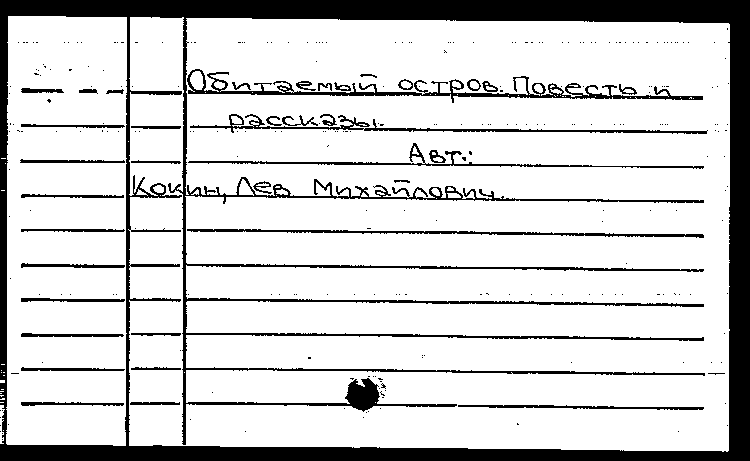 Обитаемый остров. Повесть и
рассказы.
Авт.:
Кокин, Лев Михайлович.